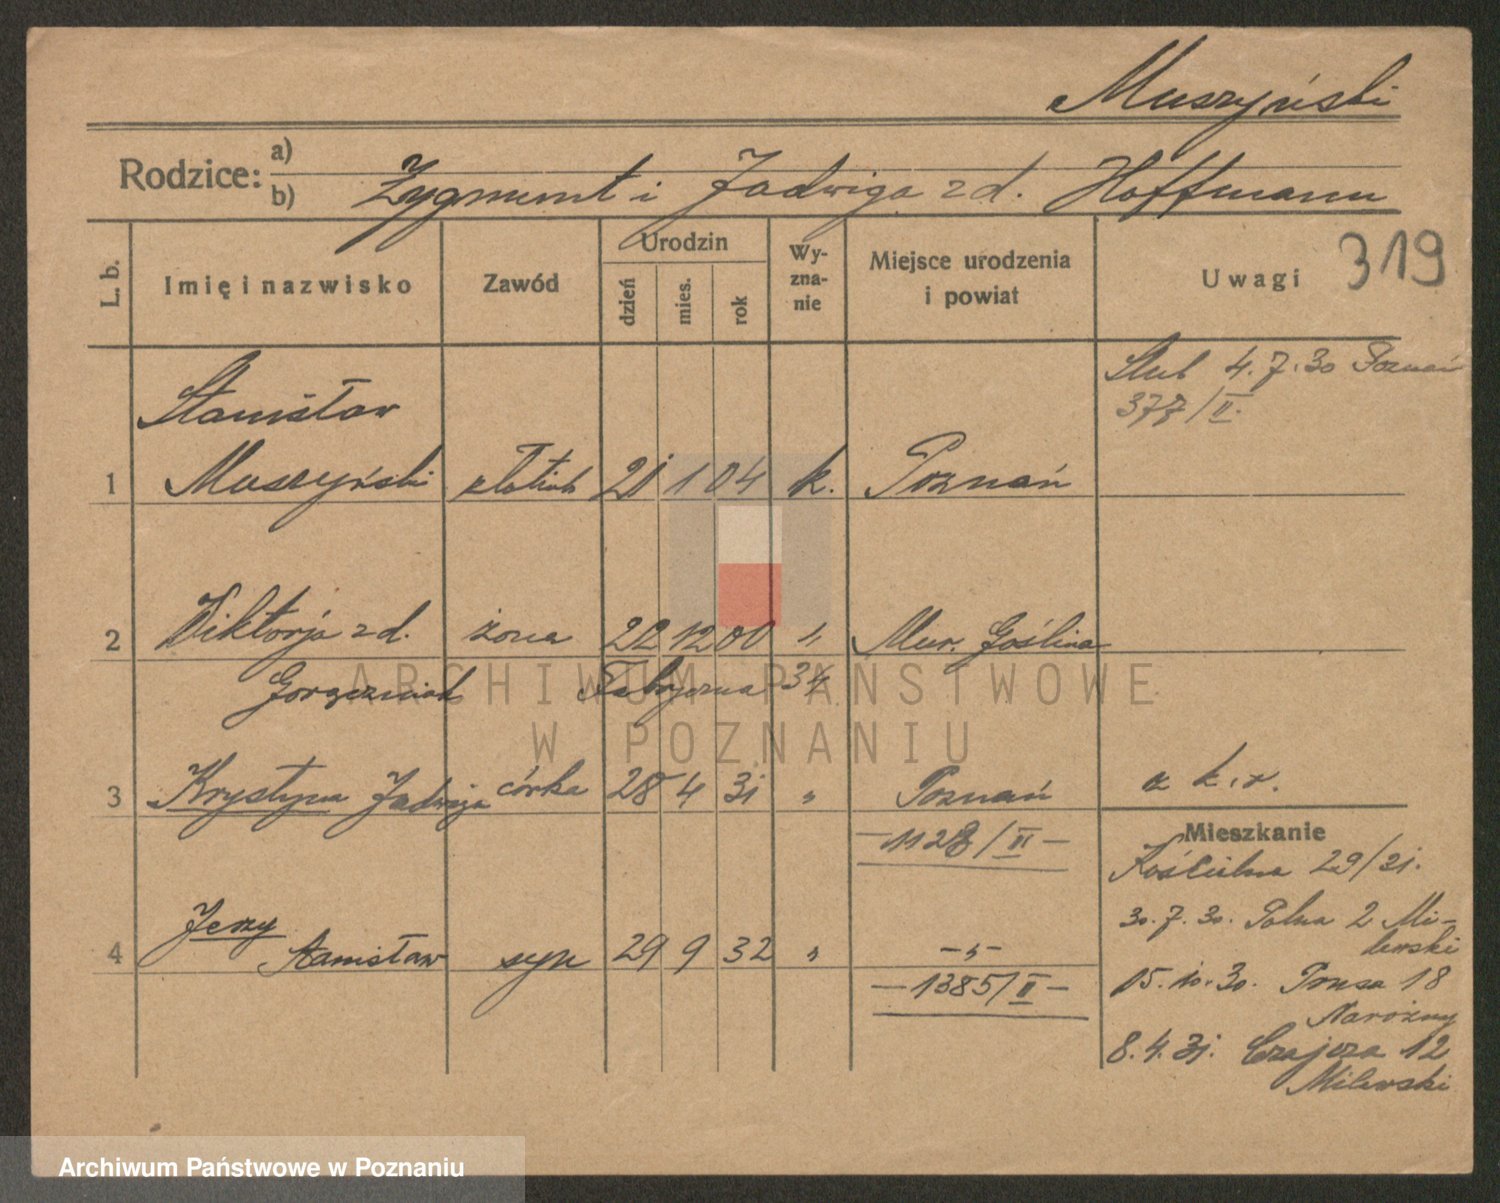 Muszyński
Rodzice: a)
b) Zygmunt i Jadwiga zd. Hoffmann
L. b. Imię i nazwisko Zawód Urodzin dzień mies. rok Wyznanie Miejsce urodzenia i powiat Uwagi 319
Ślub 4.7.30 Poznań
377/II.
Stanisław
1 Muszyński 21 1 04 k. Poznań
2 Wiktorja zd. żona 22 12 00 " Mur. Goślina
Fabryczna 34
3 Krystyna Jadwiga córka 28 4 31 " Poznań k.r.
Mieszkanie
—1128/III—
Kościelna 29/31.
30.7.30. Polna 2 Mi-
lewski
4 Jerzy
Stanisław syn 29 9 32 " —"—
—1385/II—
15.10.30. Prusa 18
Narożny
8.4.31. Czajcza 12
Milewski
ARCHIWUM PAŃSTWOWE
W POZNANIU
Archiwum Państwowe w Poznaniu